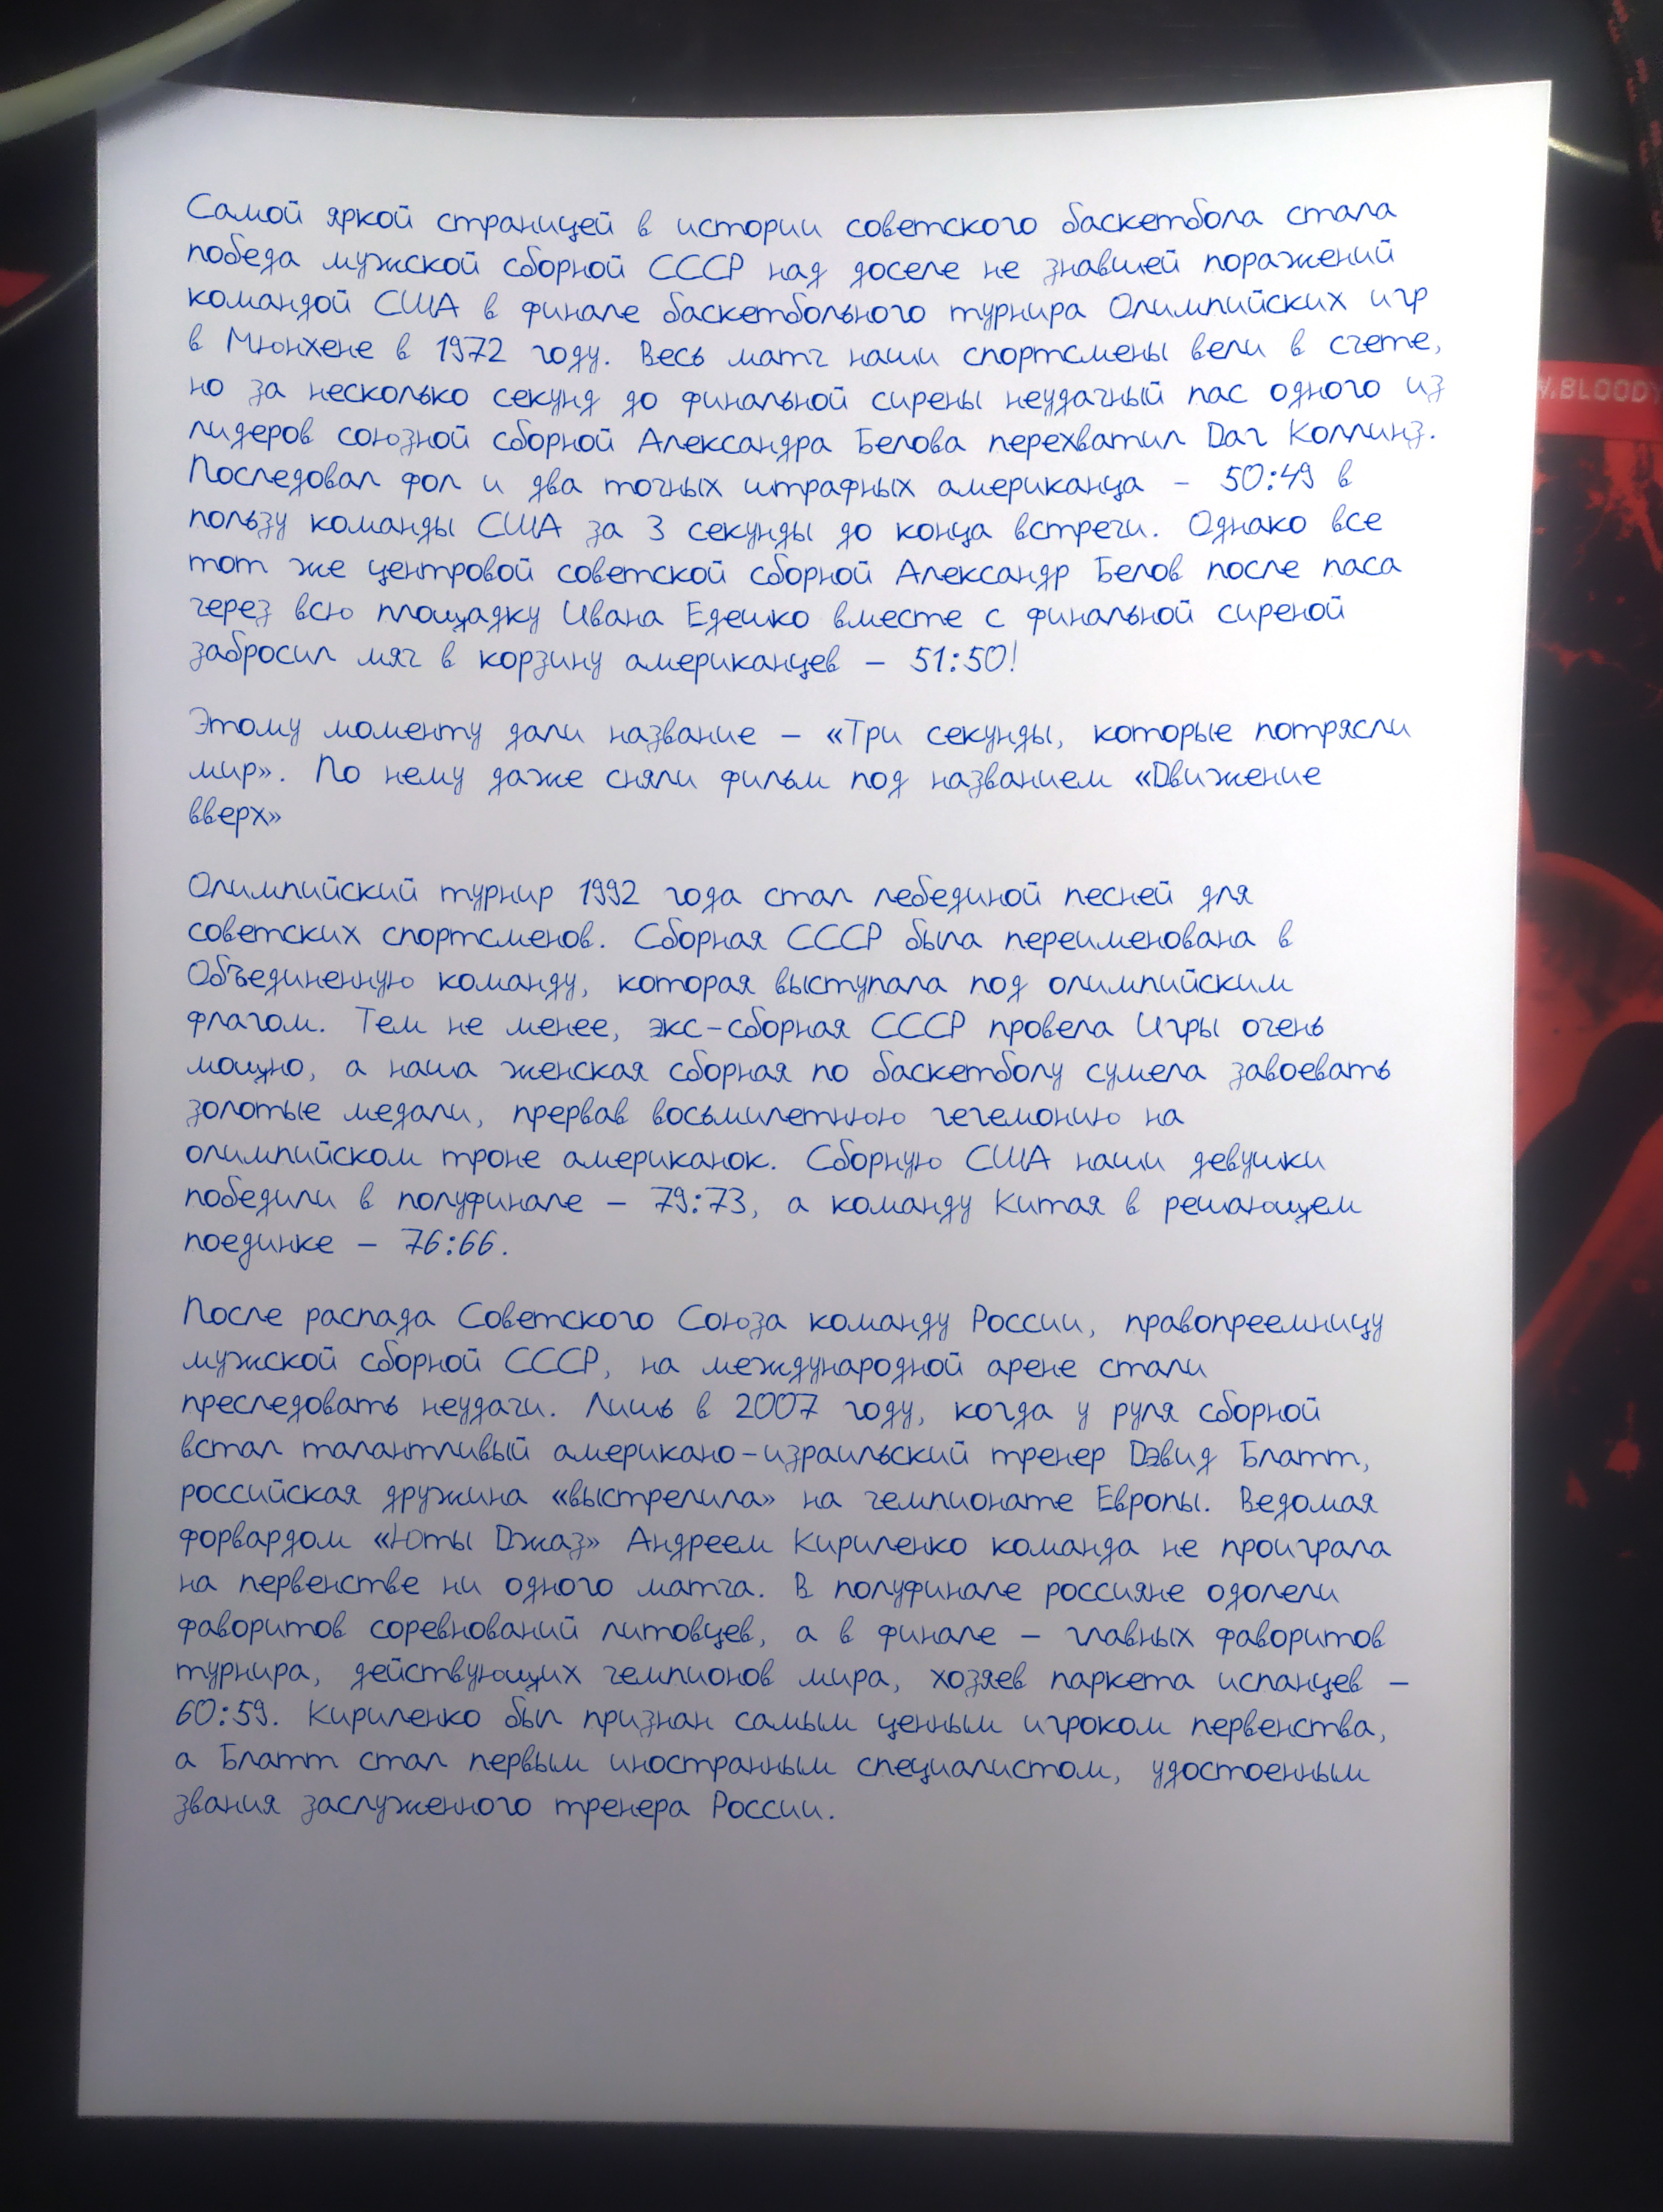 Самой яркой страницей в истории советского баскетбола стала
победа мужской сборной СССР над доселе не знавшей поражений
командой США в финале баскетбольного турнира Олимпийских игр
в Мюнхене в 1972 году. Весь матч наши спортсмены вели в счете,
но за несколько секунд до финальной сирены неудачный пас одного из
лидеров союзной сборной Александра Белова перехватил Даг Коллинз.
Последовал фол и два точных штрафных американца – 50:49 в
пользу команды США за 3 секунды до конца встречи. Однако все
тот же центровой советской сборной Александр Белов после паса
через всю площадку Ивана Едешко вместе с финальной сиреной
забросил мяч в корзину американцев – 51:50!
Этому моменту дали название – «Три секунды, которые потрясли
мир». По нему даже сняли фильм под названием «Движение
вверх»
Олимпийский турнир 1992 года стал лебединой песней для
советских спортсменов. Сборная СССР была переименована в
Объединенную команду, которая выступала под олимпийским
флагом. Тем не менее, экс-сборная СССР провела Игры очень
мощно, а наша женская сборная по баскетболу сумела завоевать
золотые медали, прервав восьмилетнюю гегемонию на
олимпийском троне американок. Сборную США наши девушки
победили в полуфинале – 79:73, а команду Китая в решающем
поединке – 76:66.
После распада Советского Союза команду России, правопреемницу
мужской сборной СССР, на международной арене стали
преследовать неудачи. Лишь в 2007 году, когда у руля сборной
встал талантливый американо-израильский тренер Дэвид Блатт,
российская дружина «выстрелила» на чемпионате Европы. Ведомая
форвардом «Юты Джаз» Андреем Кириленко команда не проиграла
на первенстве ни одного матча. В полуфинале россияне одолели
фаворитов соревнований литовцев, а в финале – главных фаворитов
турнира, действующих чемпионов мира, хозяев паркета испанцев –
60:59. Кириленко был признан самым ценным игроком первенства,
а Блатт стал первым иностранным специалистом, удостоенным
звания заслуженного тренера России.
W.BLOODY